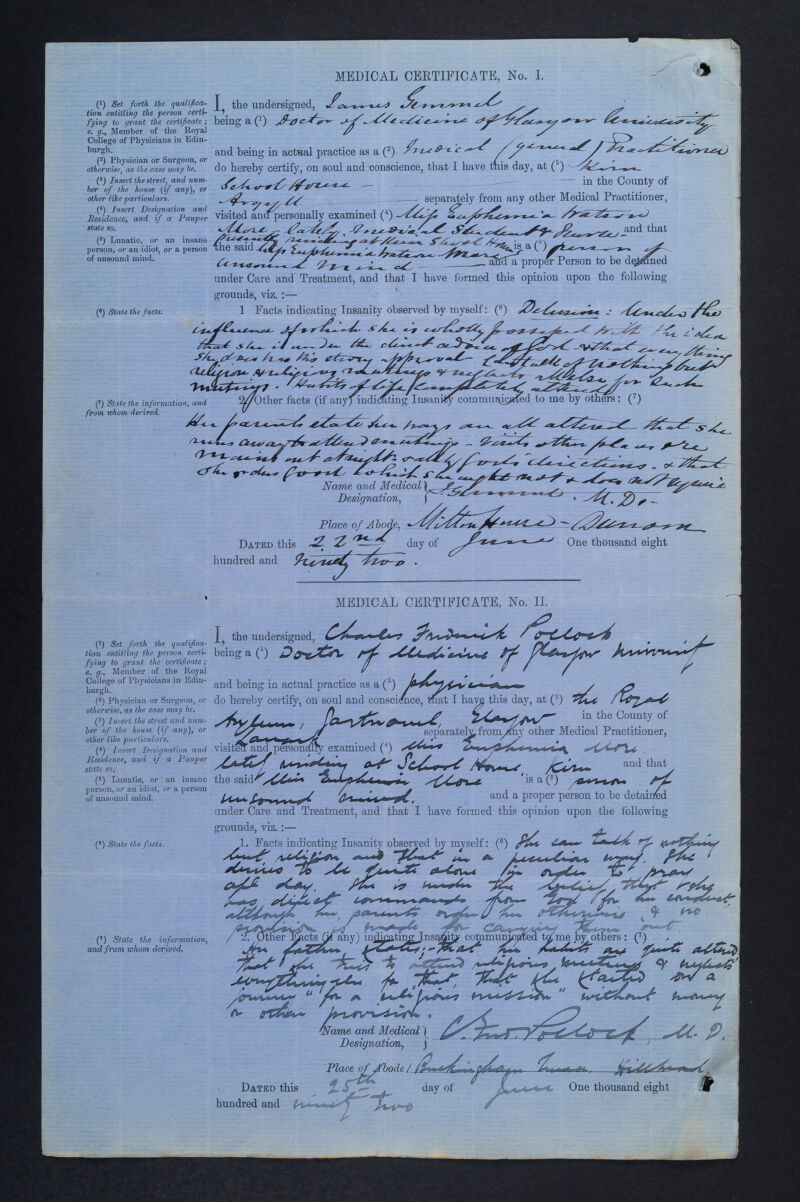 MEDICAL CERTIFICATE, No. I.
(¹) Set forth the qualifica-
tion entitling the person certi-
fying to grant the certificate;
e. g., Member of the Royal
College of Physicians in Edin-
burgh.
(²) Physician or Surgeon, or
otherwise, as the case may be.
(³) Insert the street, and num-
ber of the house (if any), or
other like particulars.
(⁴) Insert Designation and
Residence, and if a Pauper
state so.
(⁵) Lunatic, or an insane
person, or an idiot, or a person
of unsound mind.
I, the undersigned, James Gemmel
being a (¹) Doctor of Medicine of Glasgow University
and being in actual practice as a (²) Medical (general) Practitioner
do hereby certify, on soul and conscience, that I have this day, at (³) Kirn
School House in the County of
Argyll separately from any other Medical Practitioner,
visited and personally examined (⁴) Miss Euphemia Watson
More lately Medical Student & Nurse and that
presently residing at Kirn School House
the said Miss Euphemia Watson More is a (⁵) person of
unsound mind and a proper Person to be detained
under Care and Treatment, and that I have formed this opinion upon the following
grounds, viz. :—
(⁶) State the facts.
1 Facts indicating Insanity observed by myself: (⁶) Delusion: Under the
influence of which she is wholly possessed with the idea
that she is under the direct advice of God & that everything
she does has His approval talk of nothing but
religion & religious meetings & neglects all else for such
meetings. Habits of life completely altered
(⁷) State the information, and
from whom derived.
2. Other facts (if any) indicating Insanity communicated to me by others: (⁷)
Her parents state her ways are all altered – that she
runs away to attend meetings – visits other places & re
mains out at night God's directions. & that
she orders goods which she ought not & does not require
Name and Medical
Designation,
J. Gemmel M.D.
Place of Abode, Milton House – Dunoon
DATED this 22nd day of June One thousand eight
hundred and ninety two.
MEDICAL CERTIFICATE, No. II.
(¹) Set forth the qualifica-
tion entitling the person certi-
fying to grant the certificate;
e. g., Member of the Royal
College of Physicians in Edin-
burgh.
(²) Physician or Surgeon, or
otherwise, as the case may be.
(³) Insert the street and num-
ber of the house (if any), or
other like particulars.
(⁴) Insert Designation and
Residence, and if a Pauper
state so.
(⁵) Lunatic, or an insane
person, or an idiot, or a person
of unsound mind.
I, the undersigned, Charles Frederick Pollock
being a (¹) Doctor of Medicine of Glasgow University
and being in actual practice as a (²) physician
do hereby certify, on soul and conscience, that I have this day, at (³) the Royal
Asylum, Gartnavel, Glasgow in the County of
Lanark separately from any other Medical Practitioner,
visited and personally examined (⁴) Miss Euphemia More
late residing at School House, Kirn and that
the said Miss Euphemia More is a (⁵) person of
unsound mind. and a proper person to be detained
under Care and Treatment, and that I have formed this opinion upon the following
grounds, viz. :—
(⁶) State the facts.
1. Facts indicating Insanity observed by myself: (⁶) She can talk of nothing
but religion and that in a peculiar way. She
desires to be quite alone in order to pray
all day. She is under the belief that she
has direct commands from God for her conduct,
although her parents order her otherwise & no
provision is made for carrying them out
(⁷) State the information,
and from whom derived.
2. Other Facts (if any) indicating Insanity communicated to me by others: (⁷)
Her father states:– that her habits are quite altered
that she tries to attend religious meetings & neglects
everything else for that, that she started on a
journey "for a religious mission" without money
or other provision.
Name and Medical
Designation,
C. Fred. Pollock, M.D.
Place of Abode, Buckingham Terrace, Hillhead,
DATED this 25th day of June One thousand eight
hundred and ninety two